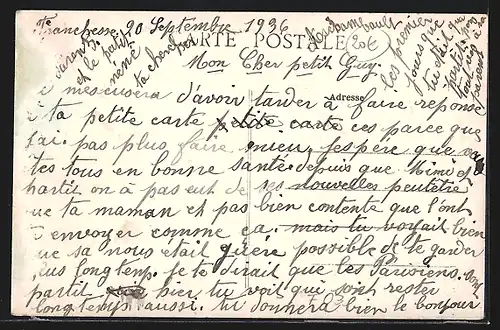 Franchesse 20 Septembre 1936
CARTE POSTALE
Mon Cher petit Guy
Adresse
d'avoir tarder a faire réponse
a ta petite carte petite carte ces parce que
j'ai pas plus faire mieu, j'espère que
tes tous en bonne santé depuis que Mimi et
partit on à pas eut de ses nouvelles peutêtre
que ta maman et pas bien contente que l'ont
envoyer comme ca. mais tu voyait bien
que sa nous était guère possible de te garder
plus longtemp. je te dirait que les Parisiens
partit hier tu voit que sont rester
longtemps aussi. tu donnera bien le bonjour
à tes parents
et le petit
René
ta chere
Deschambault
les premier
jours que
tu était